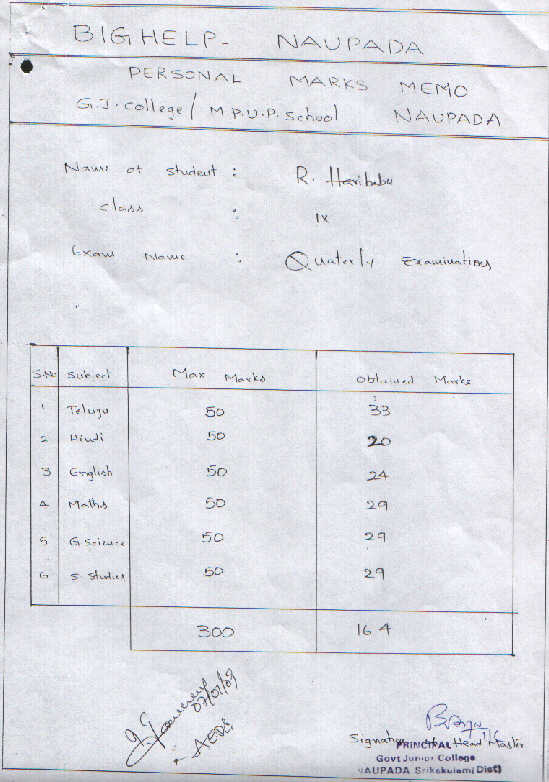 BIGHELP- NAUPADA
PERSONAL MARKS MEMO
G.J. College / M.P.U.P. School NAUPADA
Name of Student : R. Haribabu
Class : IX
Exam Name : Quaterly Examinations
S.No Subject Max Marks Obtained Marks
1 Telugu 50 33
2 Hindi 50 20
3 English 50 24
4 Maths 50 29
5 G Science 50 29
6 S. Studies 50 29
300 164
07/02/09
Signature Head Master
PRINCIPAL
Govt Junior College
NAUPADA Srikakulam Dist)